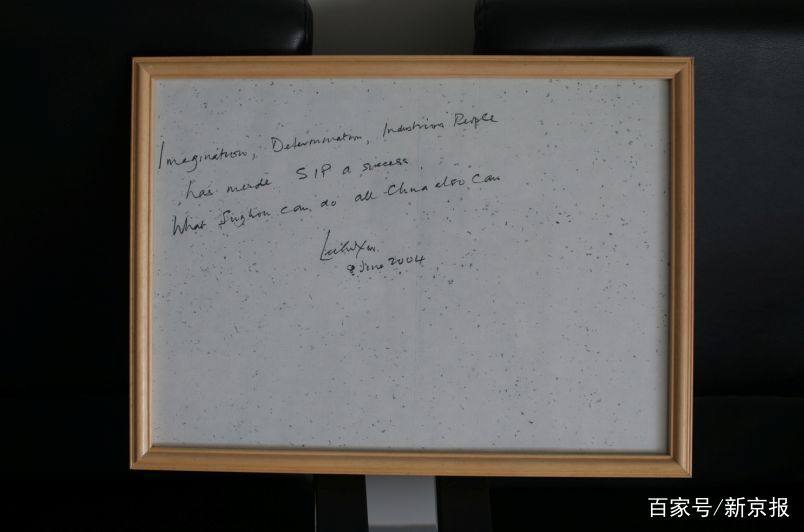 Imagination, Determination, Industrious People
has made SIP a success.
What Suzhou can do all China also can
9 June 2004
百家号/新京报